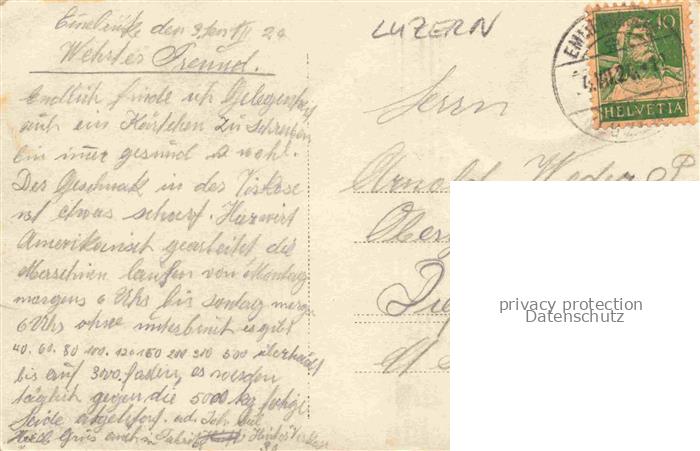 Emmenbrücke den 3ten VII 24
Wehrter Freund.
Endlich finde ich Gelegenheit
auch ein Kärtchen zu schreiben
bin imer gesund u wohl.
Der Geschmak in der Viskose
ist etwas scharf. Hier wirt
Amerikanisch gearbeitet die
Maschinen laufen von Montag
morgens 6 Uhr bis Sontag morgen
6 Uhr ohne unterbruch es gibt
40. 60. 80 100. 120 150 200 300 500 überhaupt
bis auf 3000. faden, es werden
täglich gegen die 5000 kg fertige
Seide abgeliefert. ad. Joh.
Fabrik
LUZERN
Herrn
Arnold Weder
Ober
EM
10
HELVETIA
privacy protection
Datenschutz